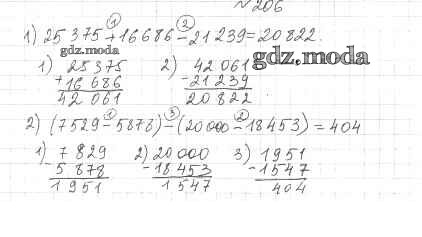 № 206
1) 25 375 + 16 686 - 21 239 = 20 822.
gdz.moda
gdz.moda
1) 25 375
+ 16 686
42 061
2) 42 061
- 21 239
20 822
2) (7529 - 5878) - (20 000 - 18 453) = 404
1) 7 829
- 5 878
1 951
2) 20 000
- 18 453
1 547
3) 1951
- 1547
404